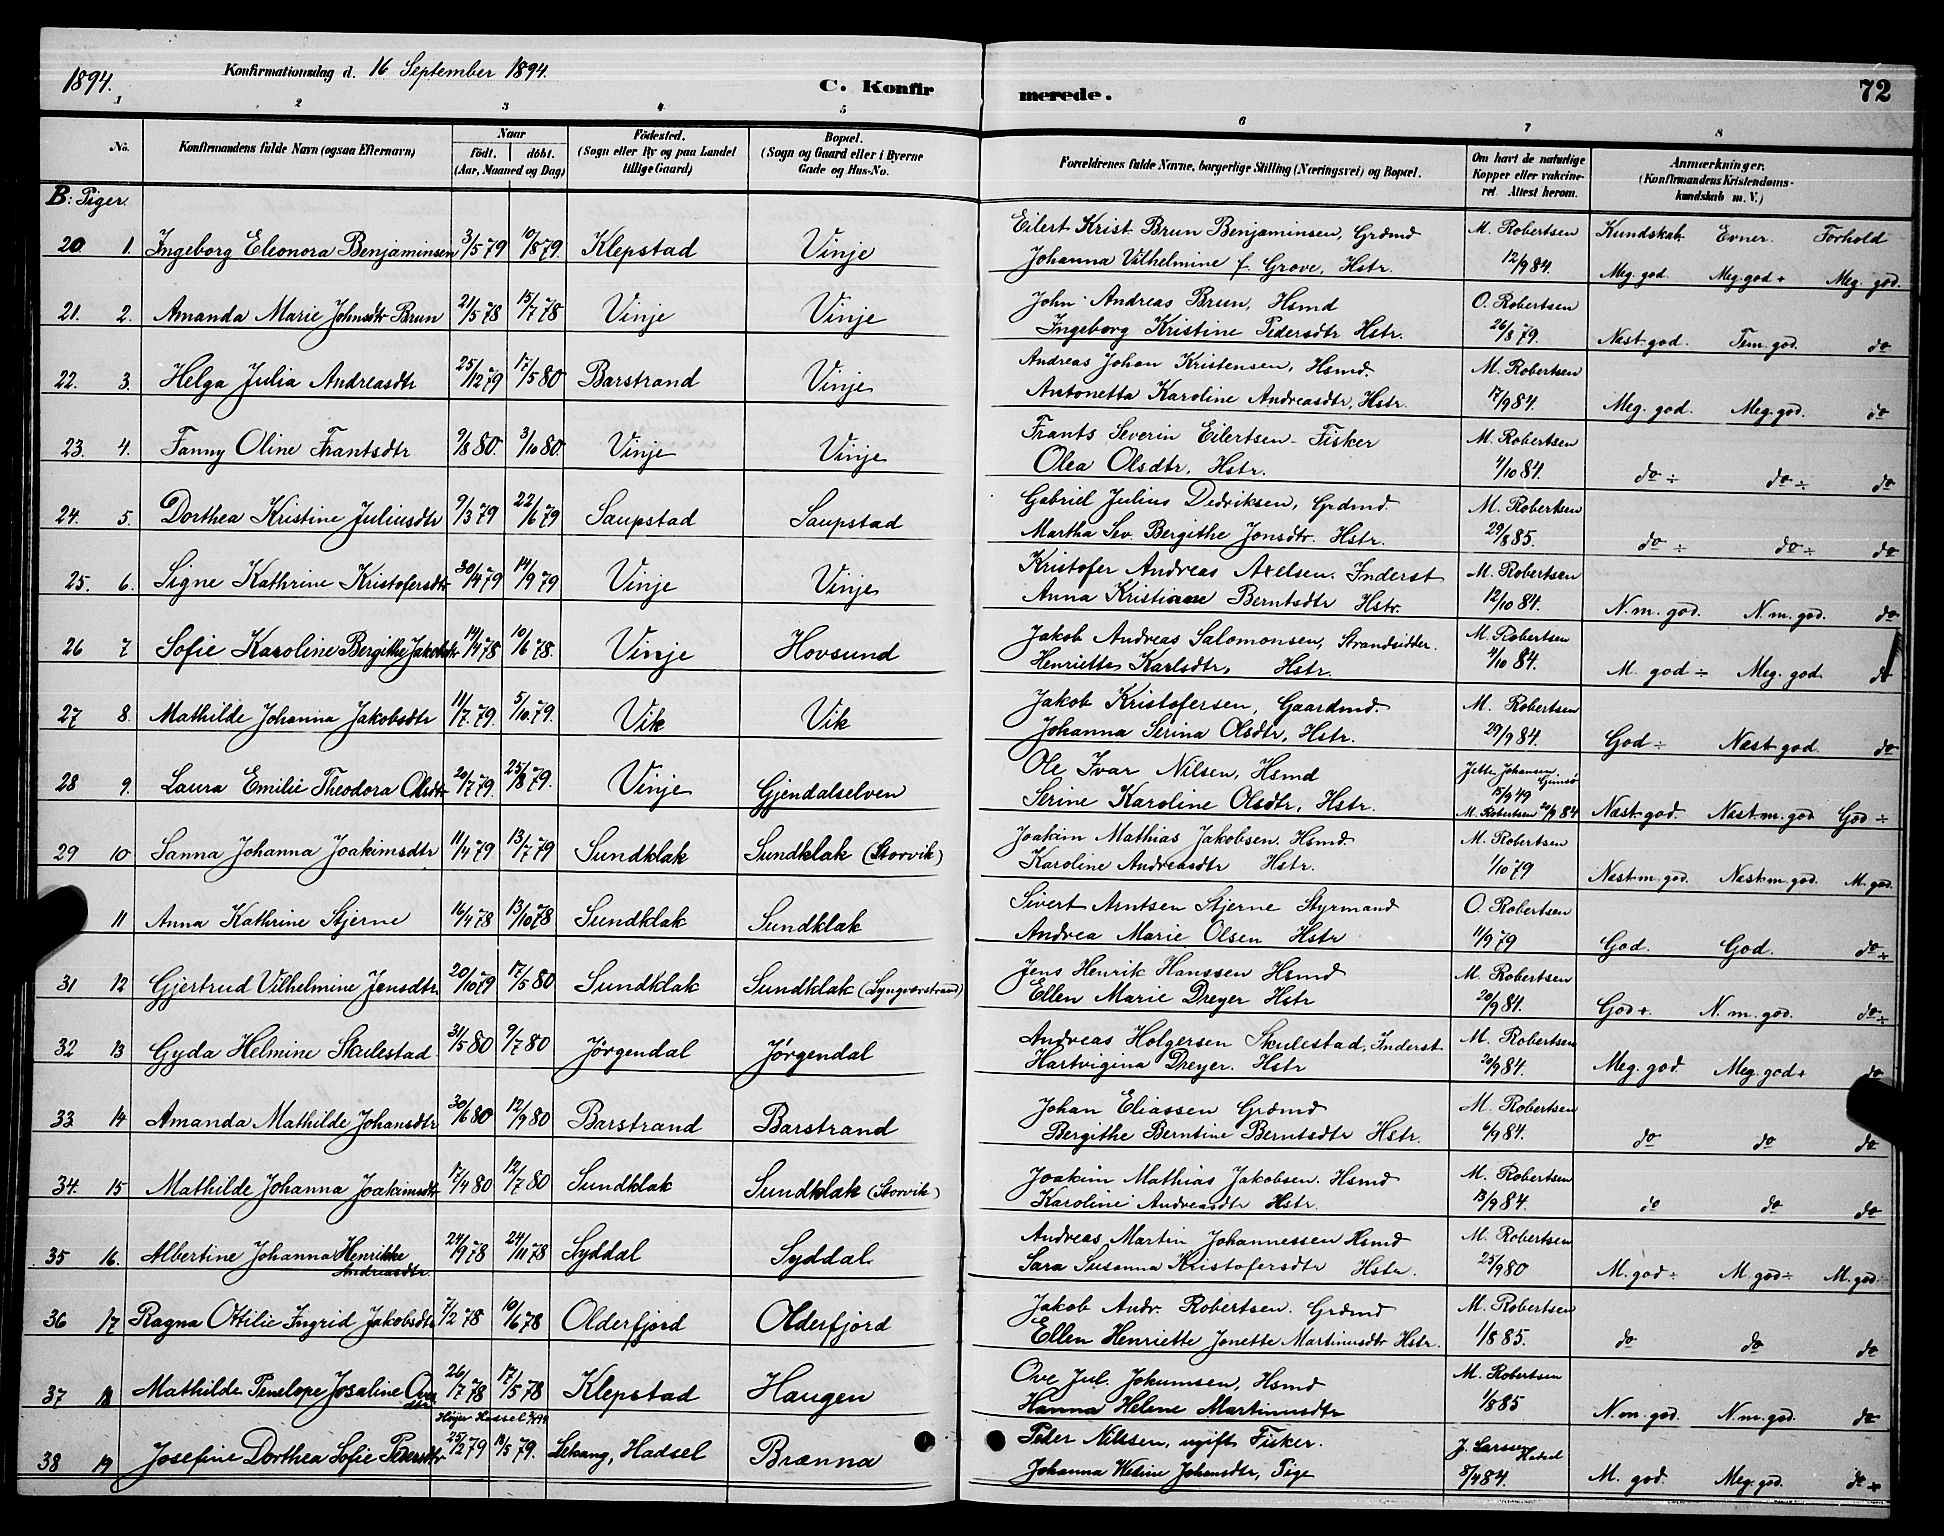 1894. Konfirmationsdag d. 16 September 1894. C. Konfirmerede. 72
1 2 3 4 5 6 7 8
No. Konfirmandens fulde Navn (ogsaa Efternavn) Naar födt. döbt. (Aar, Maaned og Dag) Födested. (Sogn eller By og paa Landet tillige Gaard) Bopæl. (Sogn og Gaard eller i Byerne Gade og Hus-No. Forældrenes fulde Navne, borgerlige Stilling (Næringsvei) og Bopæl. Om havt de naturlige Kopper eller vakcineret Attest herom. Anmærkninger. (Konfirmandens Kristendomskundskab m. V.)
B: Piger
Kundskab Evner. Forhold
20 1. Ingeborg Eleonora Benjaminsen 3/5 79 10/8 79. Klepstad Vinje Eilert Krist Brun Benjaminsen, Grdmd M. Robertsen
Johanna Vilhelmine f. Grove, Hstr. 12/9 84. Meg. god. Meg. god + Meg. god.
21. 2. Amanda Marie Johnsdtr Brun 21/5 78 15/7 78 Vinje Vinje John Andreas Brun, Hsmd O. Robertsen
Ingeborg Kristine Pedersdtr Hstr. 26/8 79. Næst. god. Tem. god. do
22. 3. Helga Julia Andreasdtr 25/12 79 17/5 80 Barstrand Vinje Andreas Johan Kristensen, Hsmd. M. Robertsen
Antonetta Karoline Andreasdtr, Hstr. 17/9 84. Meg. god. Meg. god. do
23. 4. Fanny Oline Frantsdtr 9/8 80. 3/10 80. Vinje Vinje Frants Severin Eilertsen - Fisker M. Robertsen
Olea Olsdtr, Hstr. 4/10 84. do ÷ do ÷ do
24. 5. Dorthea Kristine Juliusdtr 9/3 79 22/6 79 Saupstad Saupstad Gabriel Julius Dedriksen, Grdmd. M. Robertsen
Martha Sev. Bergithe Jonsdtr. Hstr. 29/8 85. do ÷ do ÷ do
25. 6. Signe Kathrine Kristofersdtr 30/4 79 14/9 79 Vinje Vinje Kristofer Andreas Axelsen. Inderst M. Robertsen
Anna Kristiane Berntsdtr Hstr. 12/10 84. N. m. god. N. m. god. do
26 7 Sofie Karoline Bergithe Jakobsdtr 14/4 78 10/6 78. Vinje Hovsund Jakob Andreas Salomonsen, Strandsidder. M. Robertsen
Henriette Karlsdtr, Hstr. 4/10 84. M. god ÷ Meg. god do
27 8. Mathilde Johanna Jakobsdtr 11/7 79. 5/10 79. Vik Vik Jakob Kristofersen, Gaardmd. M. Robertsen
Johanna Serina Olsdtr, Hstr. 29/9 84. God ÷ Næst god. do
28 9. Laura Emilie Theodora Olsdtr 20/7 79. 25/8 79. Vinje Gjendalselven Ole Ivar Nilsen, Hsmd Jette Johansen Gimsø
Serine Karoline Olsdtr, Hstr. 15/9 49 M. Robertsen 20/9 84 Næst god. Næst m. god God ÷
29 10. Sanna Johanna Joakimsdtr 11/4 79 13/7 79 Sundklak Sundklak (Storvik) Joakim Mathias Jakobsen. Hsmd. M. Robertsen
Karoline Andreasdtr Hstr. 1/10 79 Næst m. god. Næst m. god. M. god.
11 Anna Kathrine Stjerne 16/4 78 13/10 78 Sundklak Sundklak Sivert Arntsen Stjerne Styrmand O. Robertsen
Andrea Marie Olsen Hstr 11/9 79 God. God. do ÷
31 12 Gjertrud Vilhelmine Jensdtr 20/10 79 17/5 80 Sundklak Sundklak (Lyngværstrand) Jens Henrik Hanssen Hsmd M. Robertsen
Ellen Marie Dreyer Hstr 20/9 84. God +. N. m. god. do ÷
32 13 Gyda Helmine Skulestad 31/5 80 9/7 80 Jørgendal Jørgendal Andreas Holgersen Skulestad, Inderst M. Robertsen
Hartvigina Dreyer. Hstr 20/9 84. Meg. god Meg. god + do
33 14 Amanda Mathilde Johansdtr 30/6 80 12/9 80 Barstrand Barstrand Johan Eliassen Grdmd M. Robertsen
Bergithe Berntine Berntsdtr Hstr. 6/9 84. do do do
34. 15 Mathilde Johanna Joakimsdtr 17/4 80 12/7 80 Sundklak Sundklak (Storvik) Joakim Mathias Jakobsen. Hsmd M. Robertsen
Karoline Andreasdtr Hstr. 13/9 84. do do do
35 16. Albertine Johanna Henrikke Andreasdtr. 24/9 78 24/11 78 Syddal Syddal Andreas Martin Johannessen Hsmd M. Robertsen
Sara Susanna Kristofersdtr Hstr. 25/9 80 M. god ÷ M. god ÷ M. god.
36 17 Ragna Ottilie Ingrid Jakobsdtr 7/2 78 10/6 78 Olderfjord Olderfjord Jakob Andr. Robertsen. Grdmd M. Robertsen
Ellen Henriette Jonette Martinusdtr Hstr. 1/8 85. do do do
37 18 Mathilde Penelope Josaline Ovedtr. 26/7 78 17/5 78 Klepstad Haugen Ove Jul. Jokumsen, Hsmd M. Robertsen
Hanna Helene Martinusdtr 1/8 85 N. m. god. N. m. god. do
38 19 Josefine Dorthea Sofie Pedersdtr 25/2 79 11/5 79. Hadsel Brænna Peder Nilssen, ugift Fisker. J. Larsen Hadsel
Johanna Johansdtr, Pige 8/9 84. M. god. Meg. god. do +